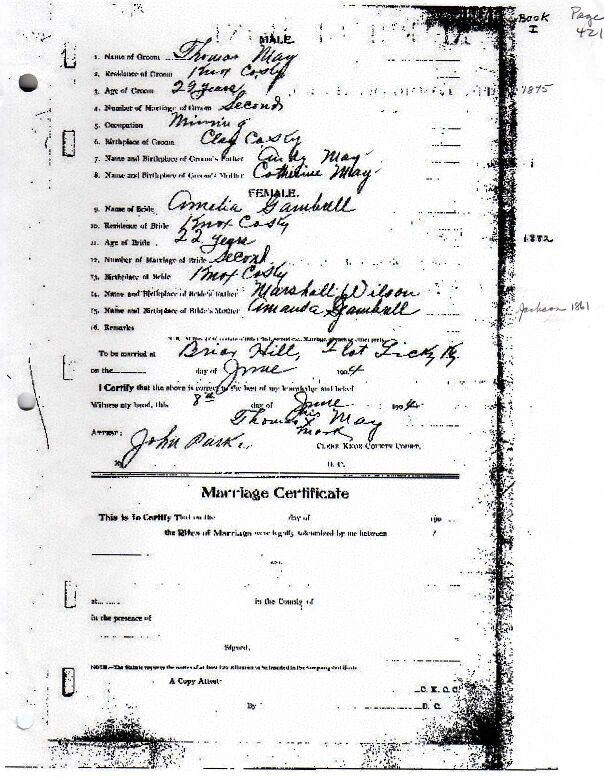 Book I
Page 421
MALE.
1. Name of Groom Thomas May
2. Residence of Groom Knox Co Ky
3. Age of Groom 29 years
1875
4. Number of Marriage of Groom Second
5. Occupation Mining
6. Birthplace of Groom Clay Co Ky
7. Name and Birthplace of Groom's Father Andy May
8. Name and Birthplace of Groom's Mother Catherine May
FEMALE.
9. Name of Bride Amelia Gambrell
10. Residence of Bride Knox Co Ky
11. Age of Bride 22 years
1882
12. Number of Marriage of Bride Second
13. Birthplace of Bride Knox Co Ky
14. Name and Birthplace of Bride's Father Marshall Wilson
15. Name and Birthplace of Bride's Mother Amanda Gambrell
Jackson 1861
16. Remarks
To be married at Briar Hill, Flat Lick Ky
on the day of June 1904
I Certify that the above is correct to the best of my knowledge and belief
Witness my hand, this 8th day of June 1904
Thomas his x mark May
Attest:
John Park
CLERK KNOX COUNTY COURT.
D. C.
Marriage Certificate
This is to Certify That on the day of 190
the Rites of Marriage were legally solemnized by me between
and
at in the County of
in the presence of
Signed,
A Copy Attest:
C. K. C. C.
By D. C.